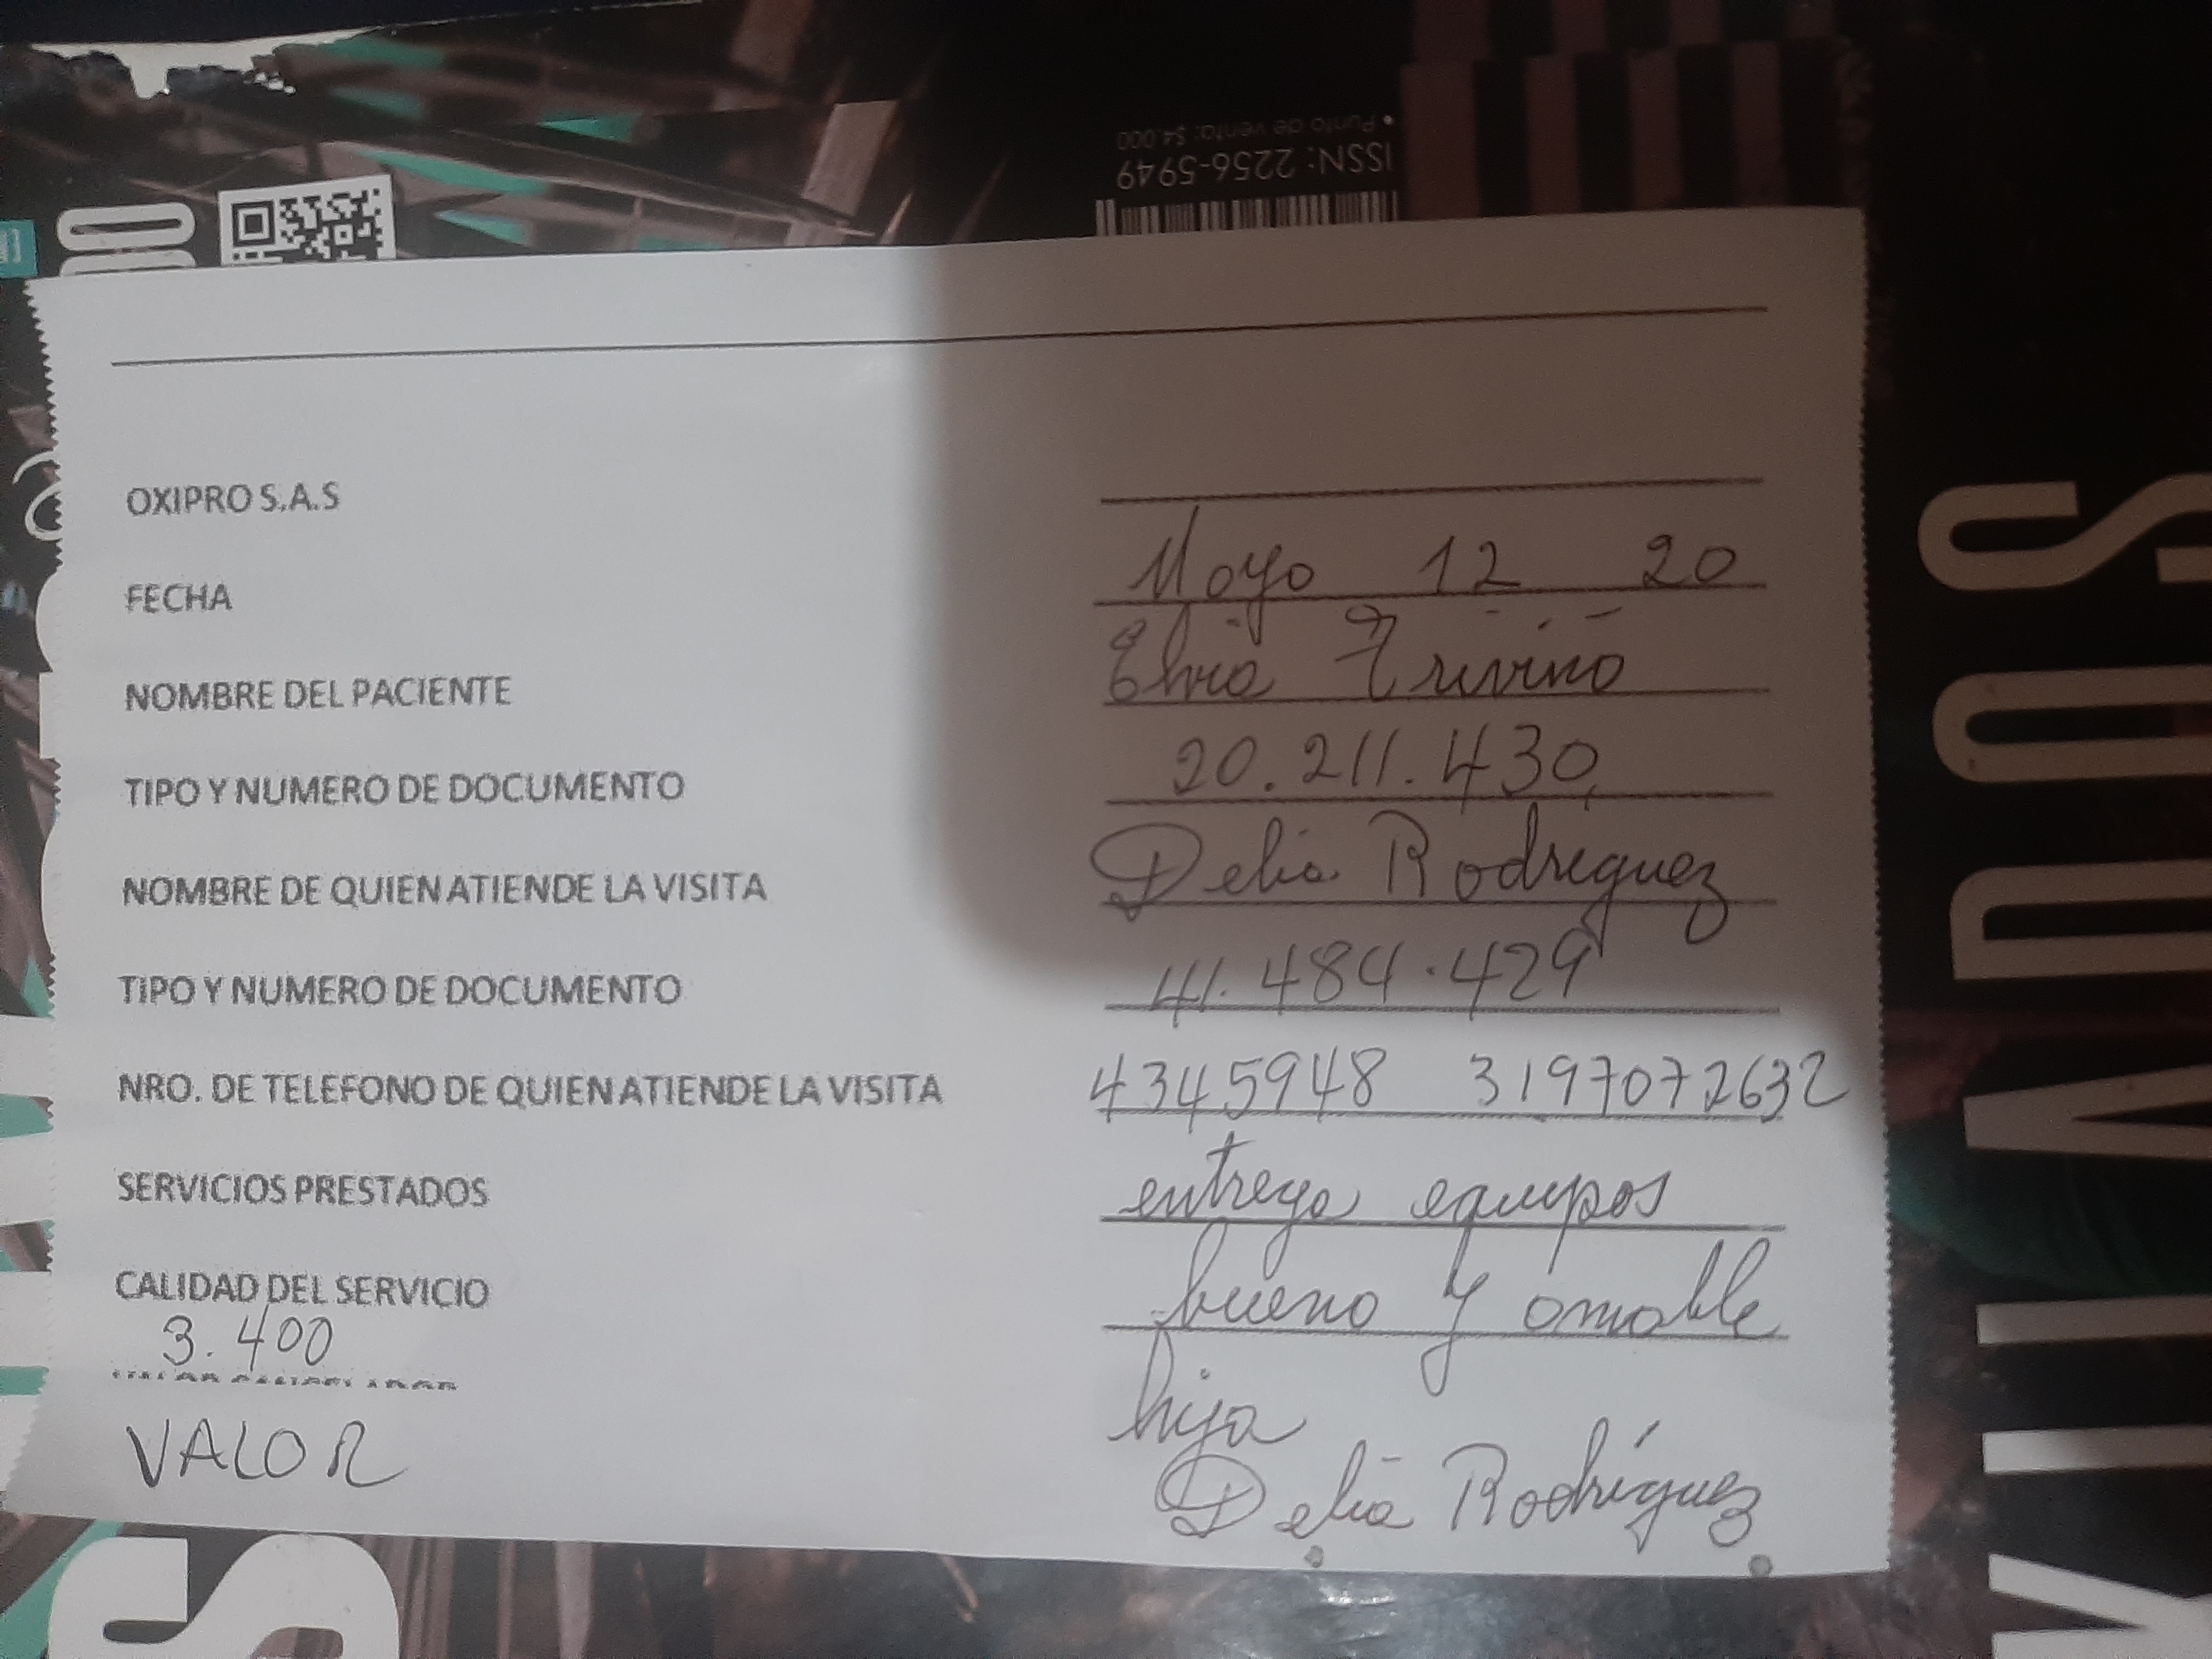 • Punto de venta: $4.000
ISSN: 2256-5949
OXIPRO S.A.S
FECHA Mayo 12 20
NOMBRE DEL PACIENTE Elvia Triviño
TIPO Y NUMERO DE DOCUMENTO 20.211.430
NOMBRE DE QUIEN ATIENDE LA VISITA Delia Rodríguez
TIPO Y NUMERO DE DOCUMENTO 41.484.429
NRO. DE TELEFONO DE QUIEN ATIENDE LA VISITA 4345948 3197072632
SERVICIOS PRESTADOS entrega equipos
CALIDAD DEL SERVICIO bueno y amable
3.400
hija
VALOR Delia Rodríguez